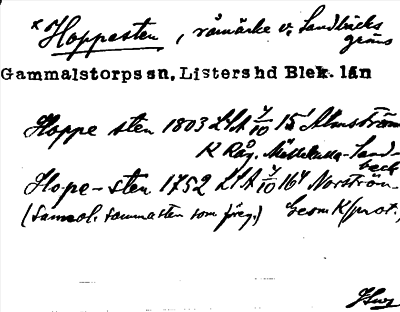 x Hoppesten, råmärke v. Sandbäcks
gräns
Gammalstorps sn, Listers hd Blek. län
Hoppe sten 1803 LSA 7/10 15' Almström
K Råg. Sand-
beck
Hope-sten 1752 LSA 7/10 16 Norström
(Samool. samma sten som föreg.) Geom K/prot.